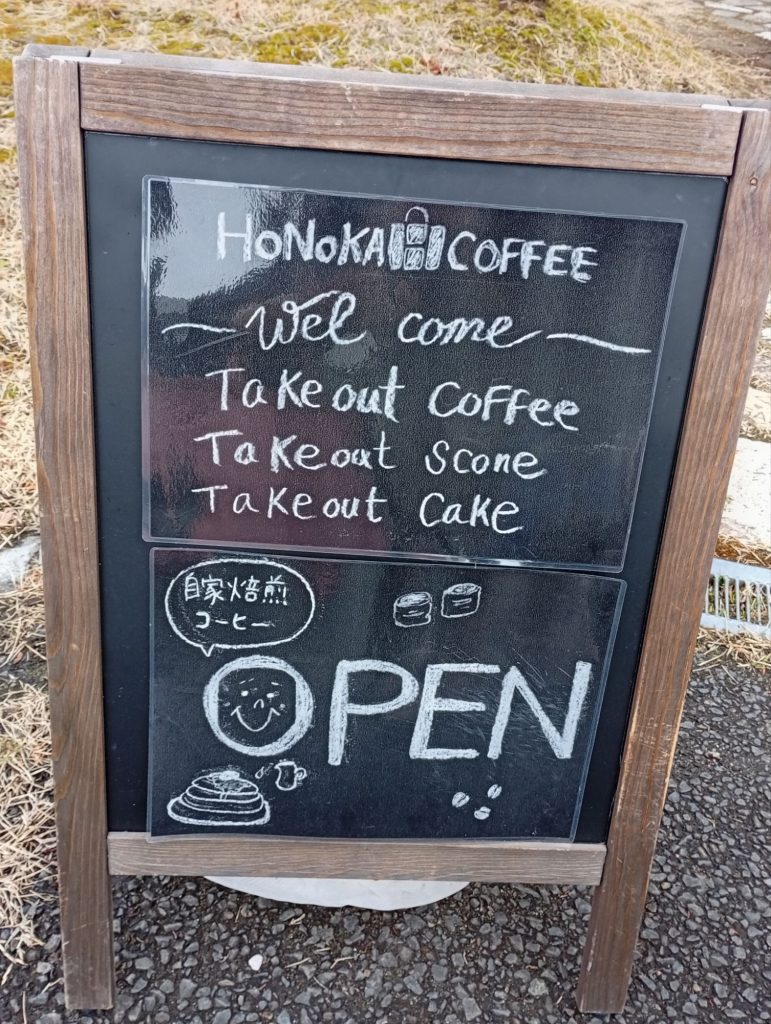 HoNoKA COFFEE
Wel come
Takeout Coffee
Takeout Scone
Takeout Cake
自家焙煎
コーヒー
OPEN